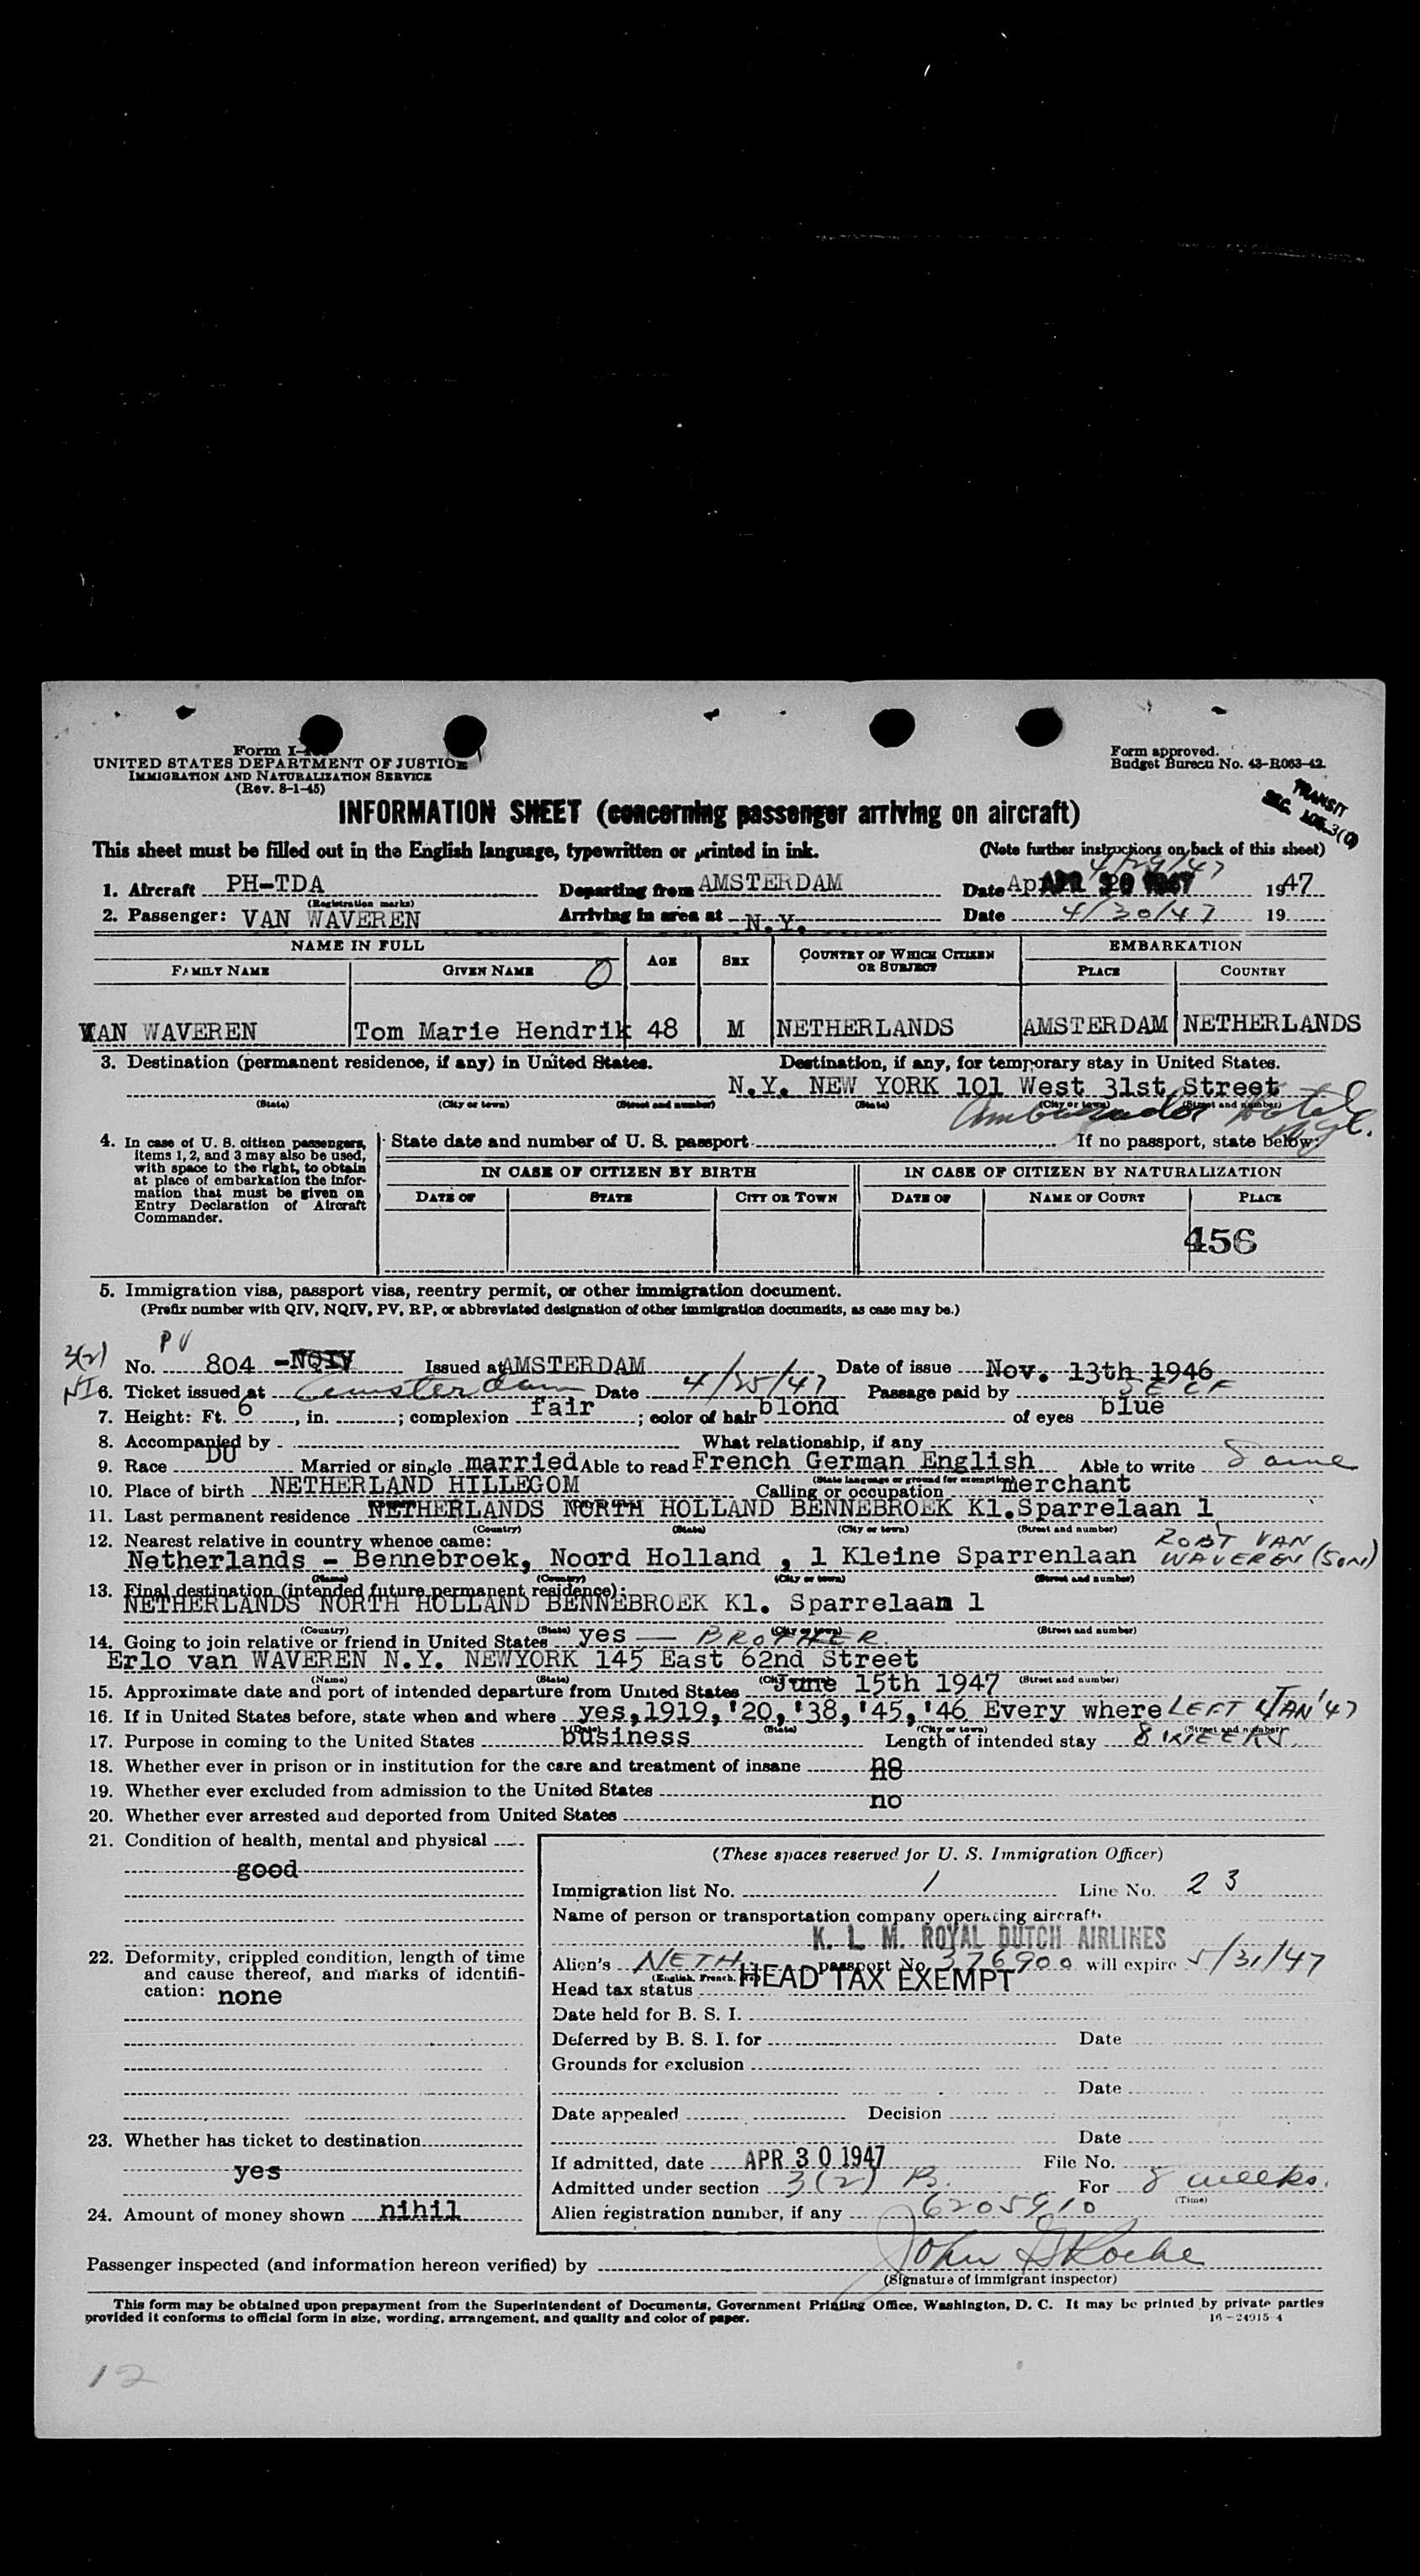 Form I-
UNITED STATES DEPARTMENT OF JUSTICE
IMMIGRATION AND NATURALIZATION SERVICE
(Rev. 8-1-45)
Form approved.
Budget Bureau No. 43-R063-42.
TRANSIT
SEC. 3(
INFORMATION SHEET (concerning passenger arriving on aircraft)
This sheet must be filled out in the English language, typewritten or printed in ink. (Note further instructions on back of this sheet)
4/29/47
1. Aircraft PH-TDA Departing from AMSTERDAM Date APR 30 1947 1947
(Registration marks)
2. Passenger: VAN WAVEREN Arriving in area at N.Y. Date 4/30/47 19
NAME IN FULL AGE SEX COUNTRY OF WHICH CITIZEN OR SUBJECT EMBARKATION
FAMILY NAME GIVEN NAME PLACE COUNTRY
VAN WAVEREN Tom Marie Hendrik 48 M NETHERLANDS AMSTERDAM NETHERLANDS
3. Destination (permanent residence, if any) in United States. Destination, if any, for temporary stay in United States.
N.Y. NEW YORK 101 West 31st Street
(State) (City or town) (Street and number) (State) (City or town) (Street and number)
Ambassador Hotel NYC.
4. In case of U. S. citizen passengers, items 1, 2, and 3 may also be used, with space to the right, to obtain at place of embarkation the information that must be given on Entry Declaration of Aircraft Commander.
State date and number of U. S. passport If no passport, state below:
IN CASE OF CITIZEN BY BIRTH IN CASE OF CITIZEN BY NATURALIZATION
DATE OF STATE CITY OR TOWN DATE OF NAME OF COURT PLACE
456
5. Immigration visa, passport visa, reentry permit, or other immigration document.
(Prefix number with QIV, NQIV, PV, RP, or abbreviated designation of other immigration documents, as case may be.)
PV
3(2) No. 804 -NQIV Issued at AMSTERDAM Date of issue Nov. 13th 1946
NI 6. Ticket issued at Amsterdam Date 4/25/47 Passage paid by SELF
7. Height: Ft. 6, in. ; complexion fair ; color of hair blond of eyes blue
8. Accompanied by What relationship, if any
9. Race DU Married or single married Able to read French German English Able to write Same
(State language or ground for exemption)
10. Place of birth NETHERLAND HILLEGOM Calling or occupation merchant
11. Last permanent residence NETHERLANDS NORTH HOLLAND BENNEBROEK Kl.Sparrelaan 1
(Country) (State) (City or town) (Street and number)
12. Nearest relative in country whence came: ROBT VAN
Netherlands - Bennebroek, Noord Holland , 1 Kleine Sparrenlaan WAVEREN (SON)
(Name) (Country) (City or town) (Street and number)
13. Final destination (intended future permanent residence):
NETHERLANDS NORTH HOLLAND BENNEBROEK Kl. Sparrelaan 1
(Country) (State) (City or town) (Street and number)
14. Going to join relative or friend in United States yes — BROTHER.
Erlo van WAVEREN N.Y. NEWYORK 145 East 62nd Street
(Name) (State) (City or town) (Street and number)
15. Approximate date and port of intended departure from United States June 15th 1947
16. If in United States before, state when and where yes,1919,'20,'38,'45,'46 Every where LEFT JAN '47
(Date) (State) (City or town) (Street and number)
17. Purpose in coming to the United States business Length of intended stay 8 WEEKS.
18. Whether ever in prison or in institution for the care and treatment of insane no
19. Whether ever excluded from admission to the United States
no
20. Whether ever arrested and deported from United States
21. Condition of health, mental and physical
good
22. Deformity, crippled condition, length of time and cause thereof, and marks of identification: none
23. Whether has ticket to destination
yes
24. Amount of money shown nihil
(These spaces reserved for U. S. Immigration Officer)
Immigration list No. 1 Line No. 23
Name of person or transportation company operating aircraft
K. L. M. ROYAL DUTCH AIRLINES
Alien's NETH. passport No. 376900 will expire 5/31/47
(English, French,
Head tax status HEAD TAX EXEMPT
Date held for B. S. I.
Deferred by B. S. I. for Date
Grounds for exclusion
Date
Date appealed Decision
Date
If admitted, date APR 30 1947 File No.
Admitted under section 3(2) B. For 8 weeks.
(Time)
Alien registration number, if any 6205910
Passenger inspected (and information hereon verified) by John G Roche
(Signature of immigrant inspector)
This form may be obtained upon prepayment from the Superintendent of Documents, Government Printing Office, Washington, D. C. It may be printed by private parties
provided it conforms to official form in size, wording, arrangement, and quality and color of paper. 16-24915-4
12